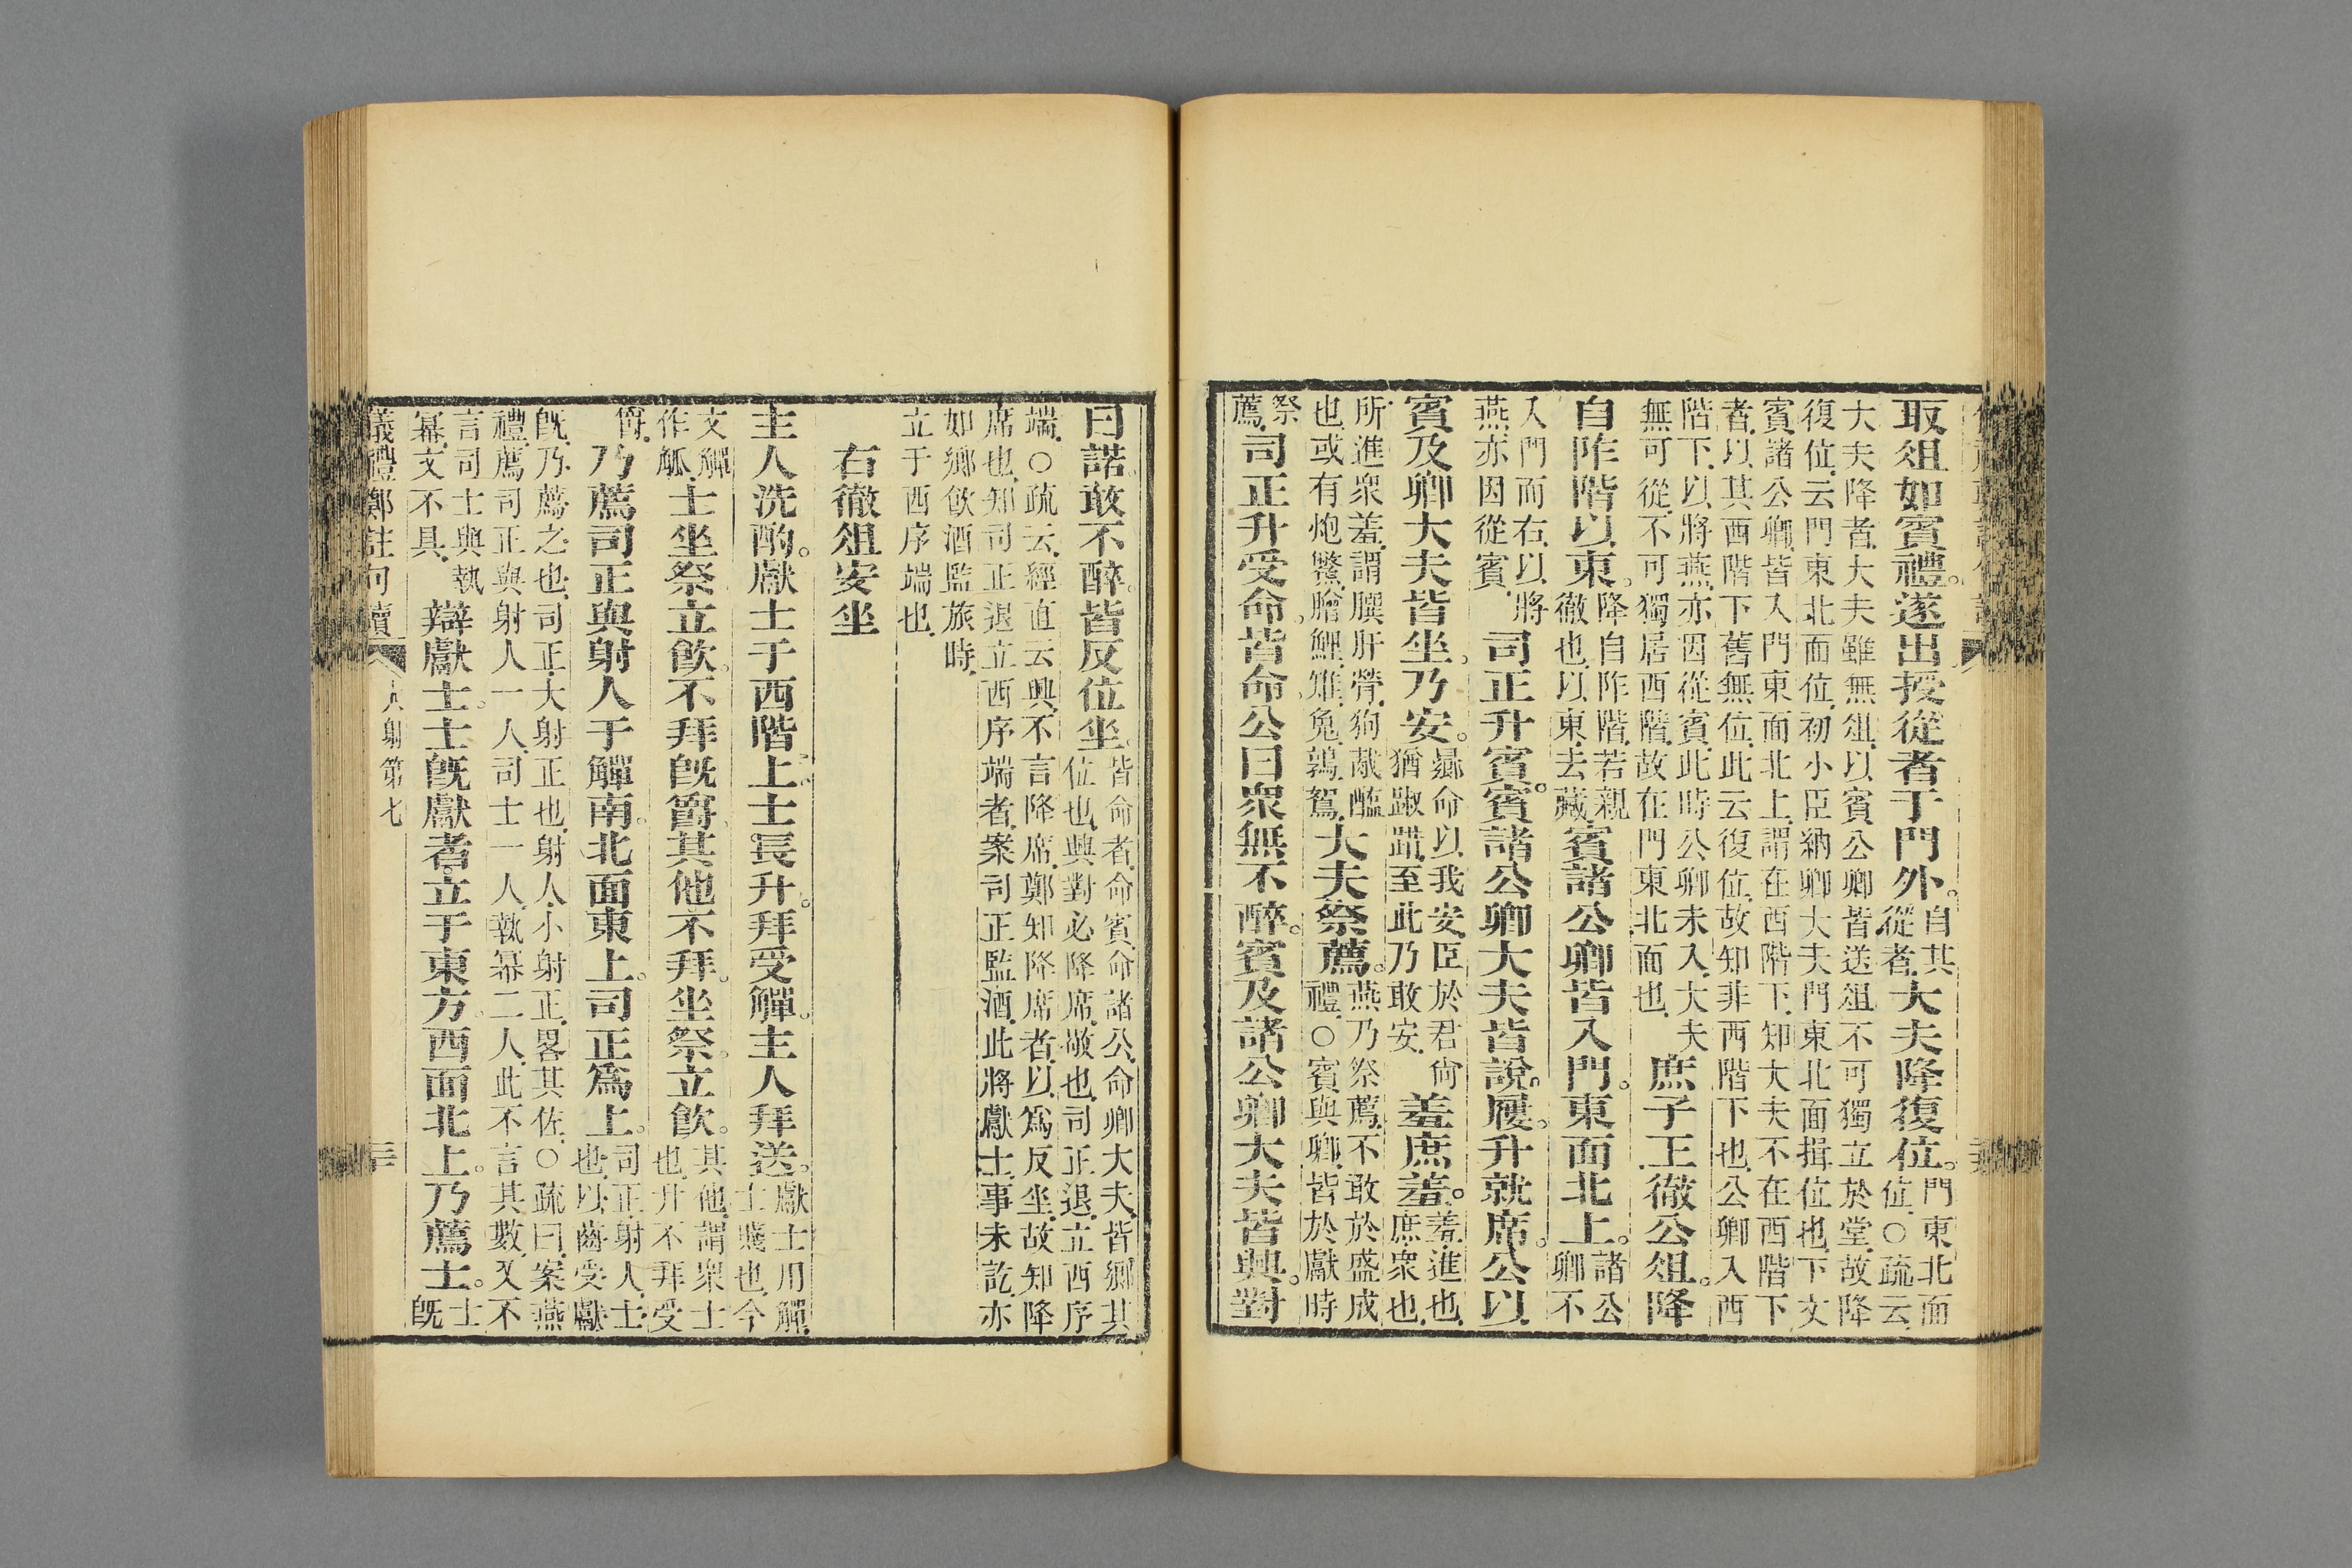 取俎如賓禮。遂出授從者于門外。自其從者、大夫降復位。門東北面位、○疏云、
大夫降者、大夫雖無俎、以賓公卿皆送俎不可獨立於堂、故降
復位、云門東北面位、初小臣納卿大夫門東北面揖位也、下文
賓諸公卿、皆入門東面北上、謂在西階下、知大夫不在西階下
者、以其西階下舊無位、此云復位、故知非西階下也、公卿入西
階下、以將燕、亦因從賓、此時公卿未入、大夫
無可從、不可獨居西階、故在門東北面也、庶子正徹公俎。降
自阼階以東。降自阼階、若親徹也、以東、去藏、賓諸公卿皆入門。東面北上。諸公卿不
入門而右、以將燕亦因從賓、司正升賓。賓諸公卿大夫皆說屨。升就席。公以
賓及卿大夫皆坐。乃安。曏命以我安、臣於君尙猶踧踖、至此乃敢安、羞庶羞。羞、進也、庶、衆也、
所進衆羞、謂膮肝膋、狗胾醢也、或有炮鱉膾鯉、雉兔鶉鴽、大夫祭薦。燕乃祭薦、不敢於盛成禮、○賓與卿、皆於獻時
祭薦、司正升受命。皆命。公曰衆無不醉。賓及諸公卿大夫皆興。對
曰諾。敢不醉。皆反位坐。皆命者、命賓、命諸公、命卿大夫、皆鄕其位也、興對必降席、敬也、司正退、立西序
端、○疏云、經直云興、不言降席、鄭知降席者、以爲反坐、故知降
席也、知司正退立西序端者、案司正監酒、此將獻士、事未訖、亦
如鄉飮酒監旅時、
立于西序端也、
右徹俎安坐
主人洗酌。獻士于西階上。士長升。拜受觶。主人拜送。獻士用觶、士賤也、今
文觶作觚、士坐祭立飮。不拜旣爵。其他不拜。坐祭。立飮。其他、謂衆士也、升不拜受
爵、乃薦司正與射人于觶南。北面東上。司正爲上。司正、射人、士也、以齒受獻
旣、乃薦之也、司正、大射正也、射人、小射正、畧其佐、○疏曰、案燕
禮、薦司正與射人一人、司士一人、執冪二人、此不言其數、又不
言司士與執冪、文不具、辯獻士。士旣獻者。立于東方。西面北上。乃薦士。士旣
儀禮鄭註句讀 大射第七